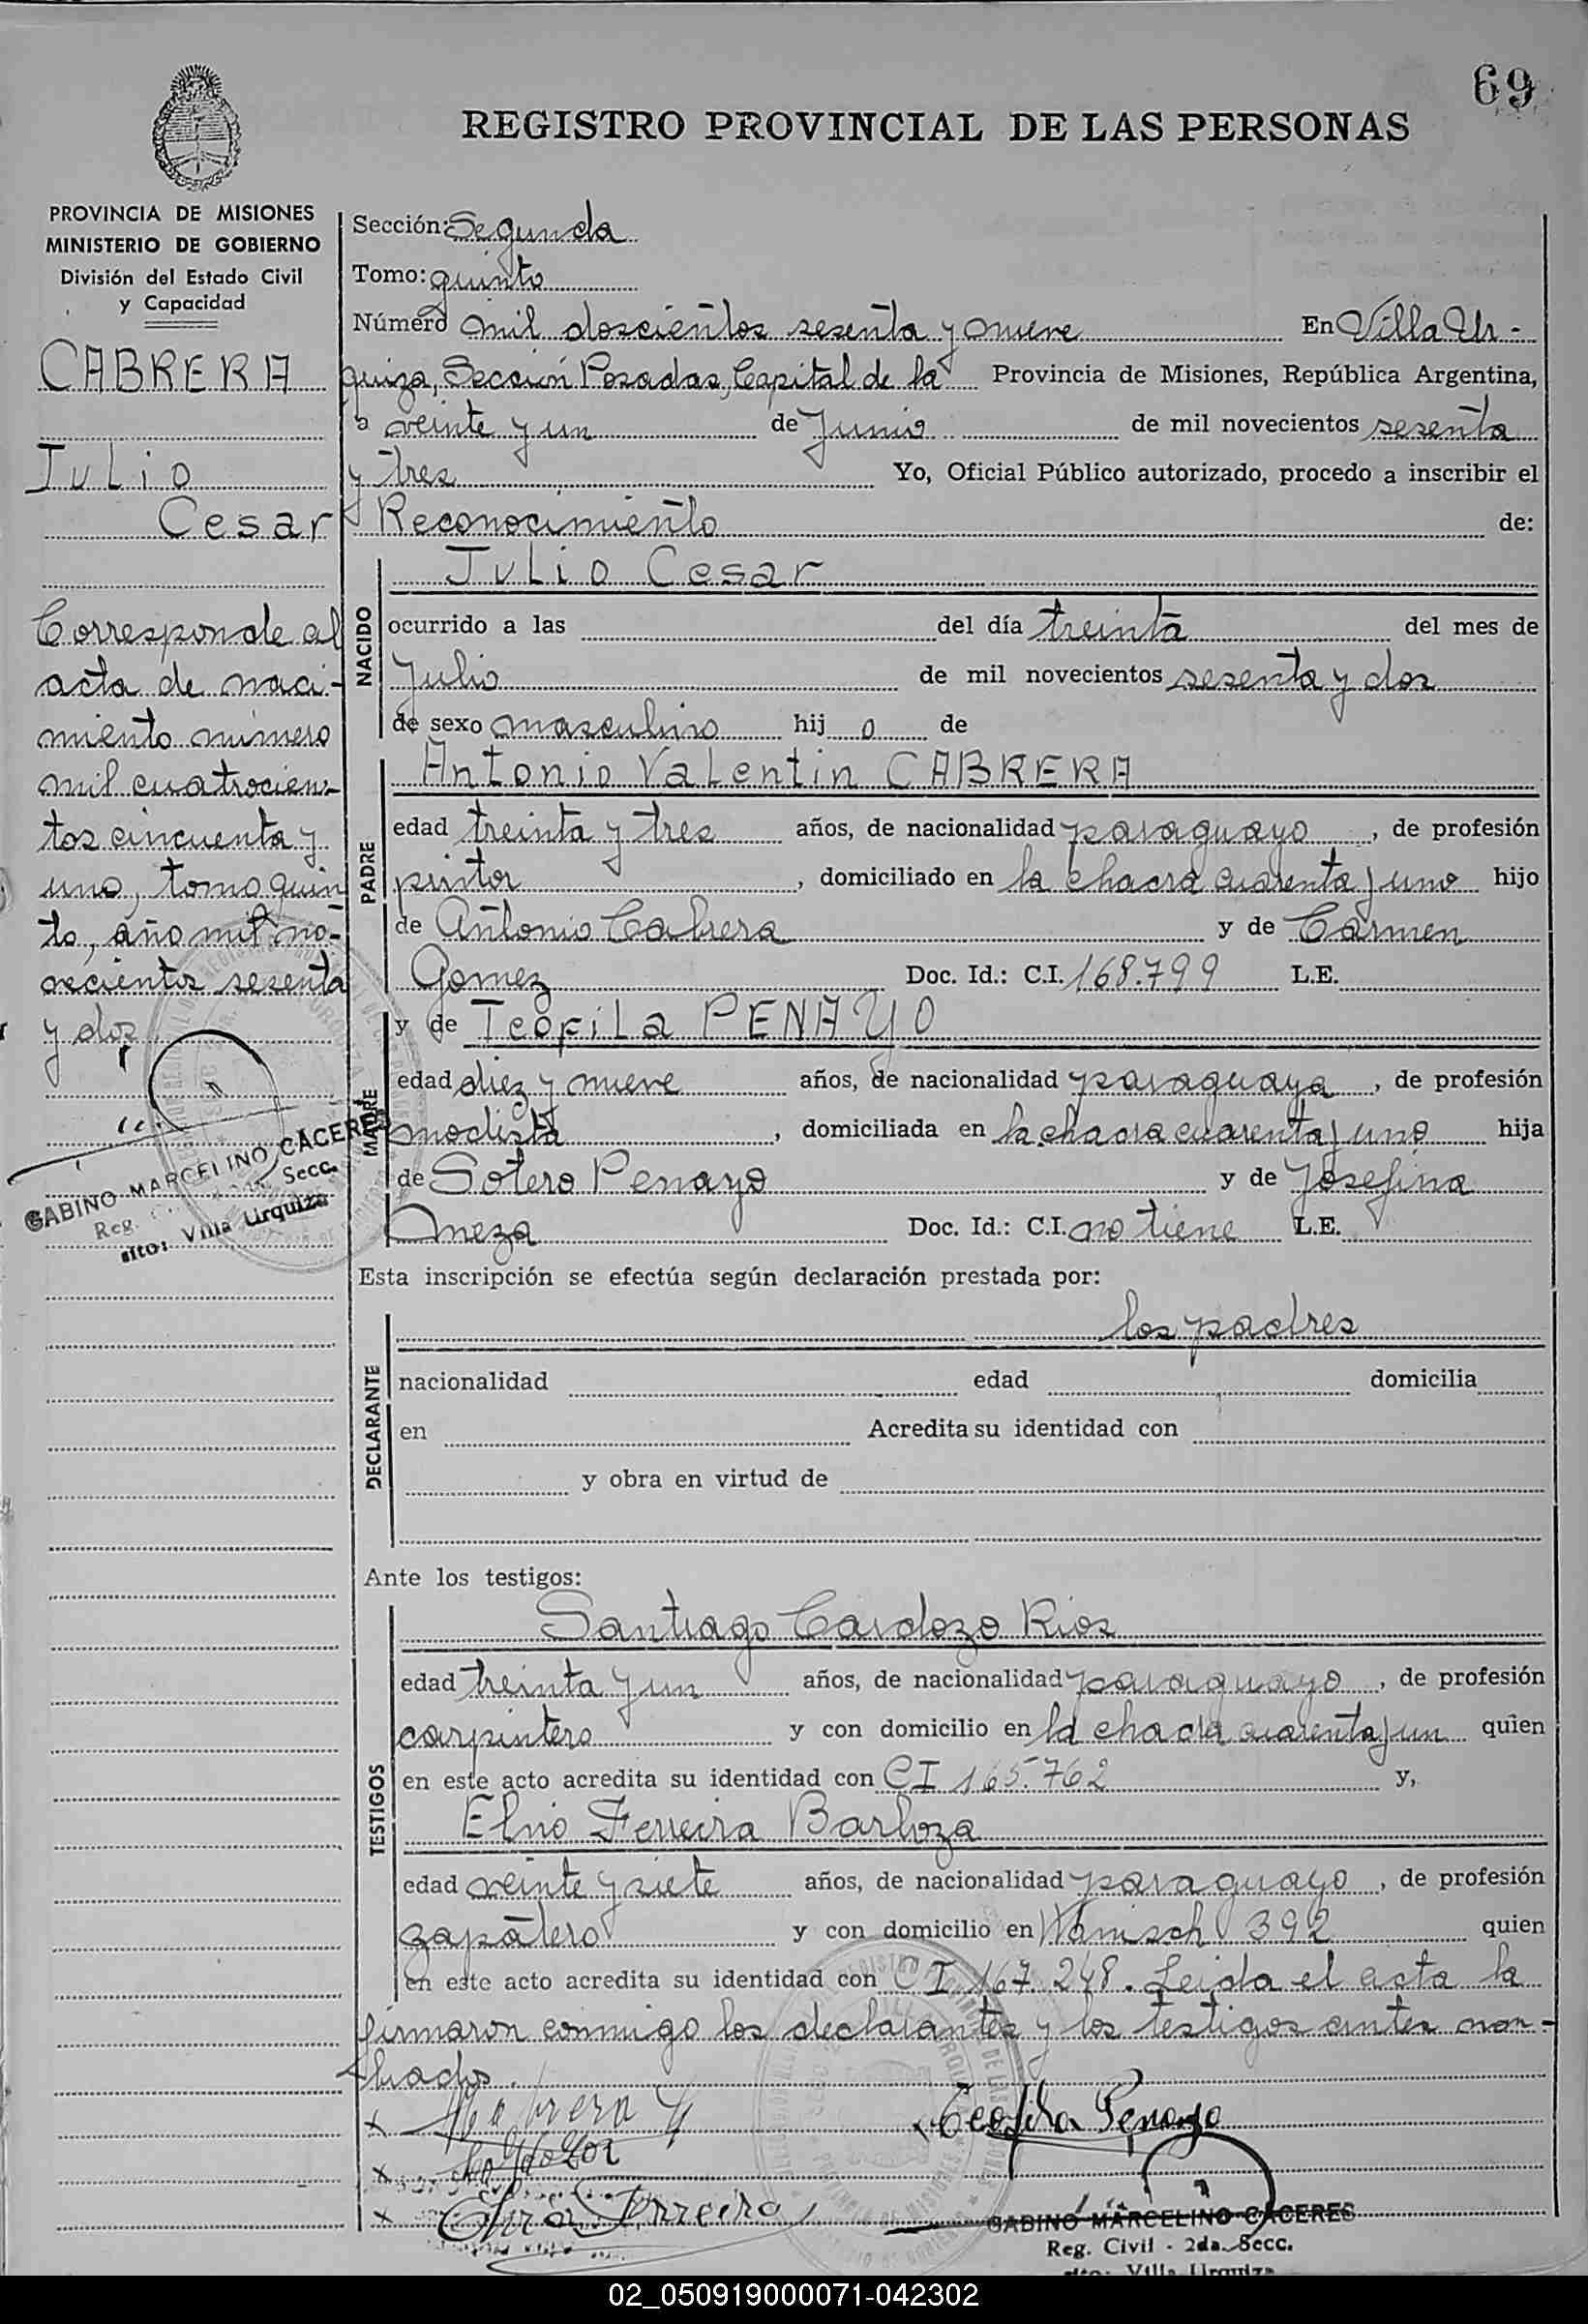 69
REGISTRO PROVINCIAL DE LAS PERSONAS
PROVINCIA DE MISIONES
MINISTERIO DE GOBIERNO
División del Estado Civil
y Capacidad
CABRERA
Julio
Cesar
Corresponde al
acta de naci-
miento número
mil cuatrocien-
tos cincuenta y
uno, tomo quin
to, año mil no-
vecientos sesenta
y dos
GABINO MARCELINO CACERES
Reg. Secc.
alto: Villa Urquiza
Sección: Segunda
Tomo: quinto
Número mil doscientos sesenta y nueve En Villa Ur-
quiza, Sección Posadas, Capital de la Provincia de Misiones, República Argentina,
a veinte y un de Junio de mil novecientos sesenta
y tres Yo, Oficial Público autorizado, procedo a inscribir el
Reconocimiento de:
NACIDO
Julio Cesar
ocurrido a las del día treinta del mes de
Julio de mil novecientos sesenta y dos
de sexo masculino hij o de
PADRE
Antonio Valentin CABRERA
edad treinta y tres años, de nacionalidad paraguayo, de profesión
pintor, domiciliado en la chacra cuarenta y uno hijo
de Antonio Cabrera y de Carmen
Gomez Doc. Id.: C.I. 168.799 L.E.
MADRE
y de Teofila PENAYO
edad diez y nueve años, de nacionalidad paraguaya, de profesión
modista, domiciliada en la chacra cuarenta y uno hija
de Sotero Penayo y de Josefina
Meza Doc. Id.: C.I. no tiene L.E.
Esta inscripción se efectúa según declaración prestada por:
DECLARANTE
los padres
nacionalidad edad domicilia
en Acredita su identidad con
y obra en virtud de
Ante los testigos:
TESTIGOS
Santiago Cardozo Rios
edad treinta y un años, de nacionalidad paraguayo, de profesión
carpintero y con domicilio en la chacra cuarenta y un quien
en este acto acredita su identidad con CI 165.762 y,
Elvio Ferreira Barboza
edad veinte y siete años, de nacionalidad paraguayo, de profesión
zapatero y con domicilio en 392 quien
en este acto acredita su identidad con CI 167.248. Leida el acta la
firmaron conmigo los declarantes y los testigos antes nom-
brados.
x Cabrera
x Teofila Penayo
x
x Ferreira
GABINO MARCELINO CACERES
Reg. Civil - 2da. Secc.
alto: Villa Urquiza
02_050919000071-042302